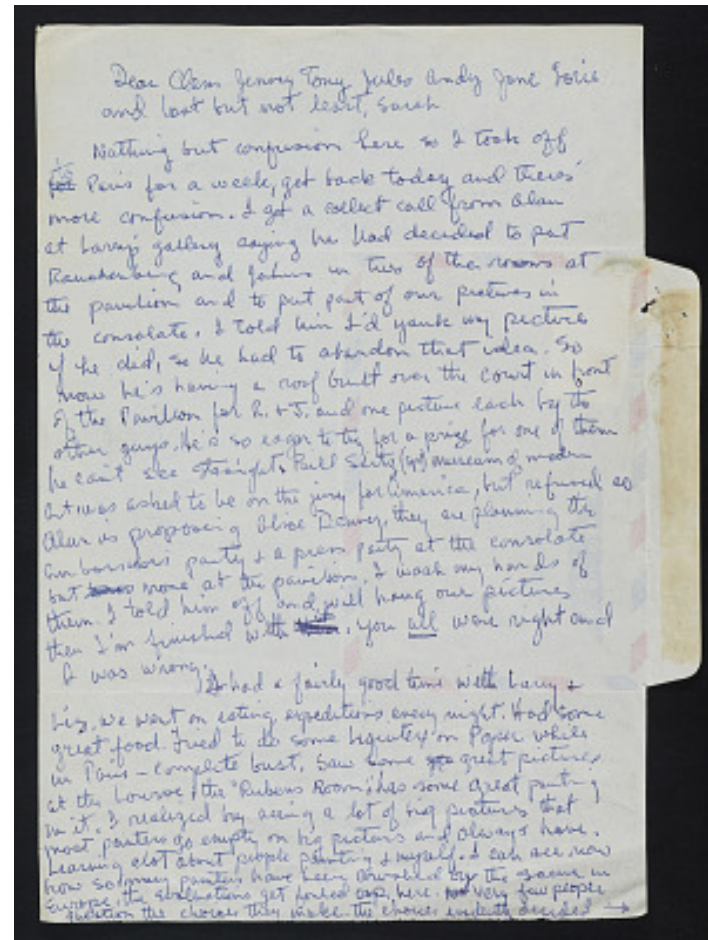 Dear Clem Jenny Tony Jules Andy Jane
and last but not least, Sarah
Nothing but confusion here so I took off
to Paris for a week, got back today and theres'
more confusion. I got a collect call from Alan
at Larry's gallery saying he had decided to put
Rauchenberg and Johns in two of the rooms at
the pavilion and to put part of our pictures in
the consolate. I told him I'd yank my pictures
if he did, so he had to abandon that idea. So
now he's having a roof built over the court in front
of the Pavilion for R. + J. and one picture each by the
other guys. He's so eager to try for a prize for one of them
he can't see straight. Bill Seitz museum of modern
art was asked to be on the jury for America, but refused so
Alan is proposing they are planning the
ambassadors party + a press party at the consolate
but none at the pavilion. I wash my hands of
them. I told him off and will hang our pictures
then I'm finished with , you all were right and
I was wrong.
I had a fairly good time with Larry +
Liz, we went on eating expeditions every night. Had some
great food. Tried to do some liquitex on Paper while
in Paris – complete bust. Saw some great pictures
at the Louvre, the "Rubens Room" has some great painting
in it. I realized by seeing a lot of big pictures that
most painters go empty on big pictures and always have.
Learning alot about people painting + myself. I can see now
how so many painters have been by the scene in
Europe, the evaluations get here. very few people
question the choices they make. the choices evidently decided →